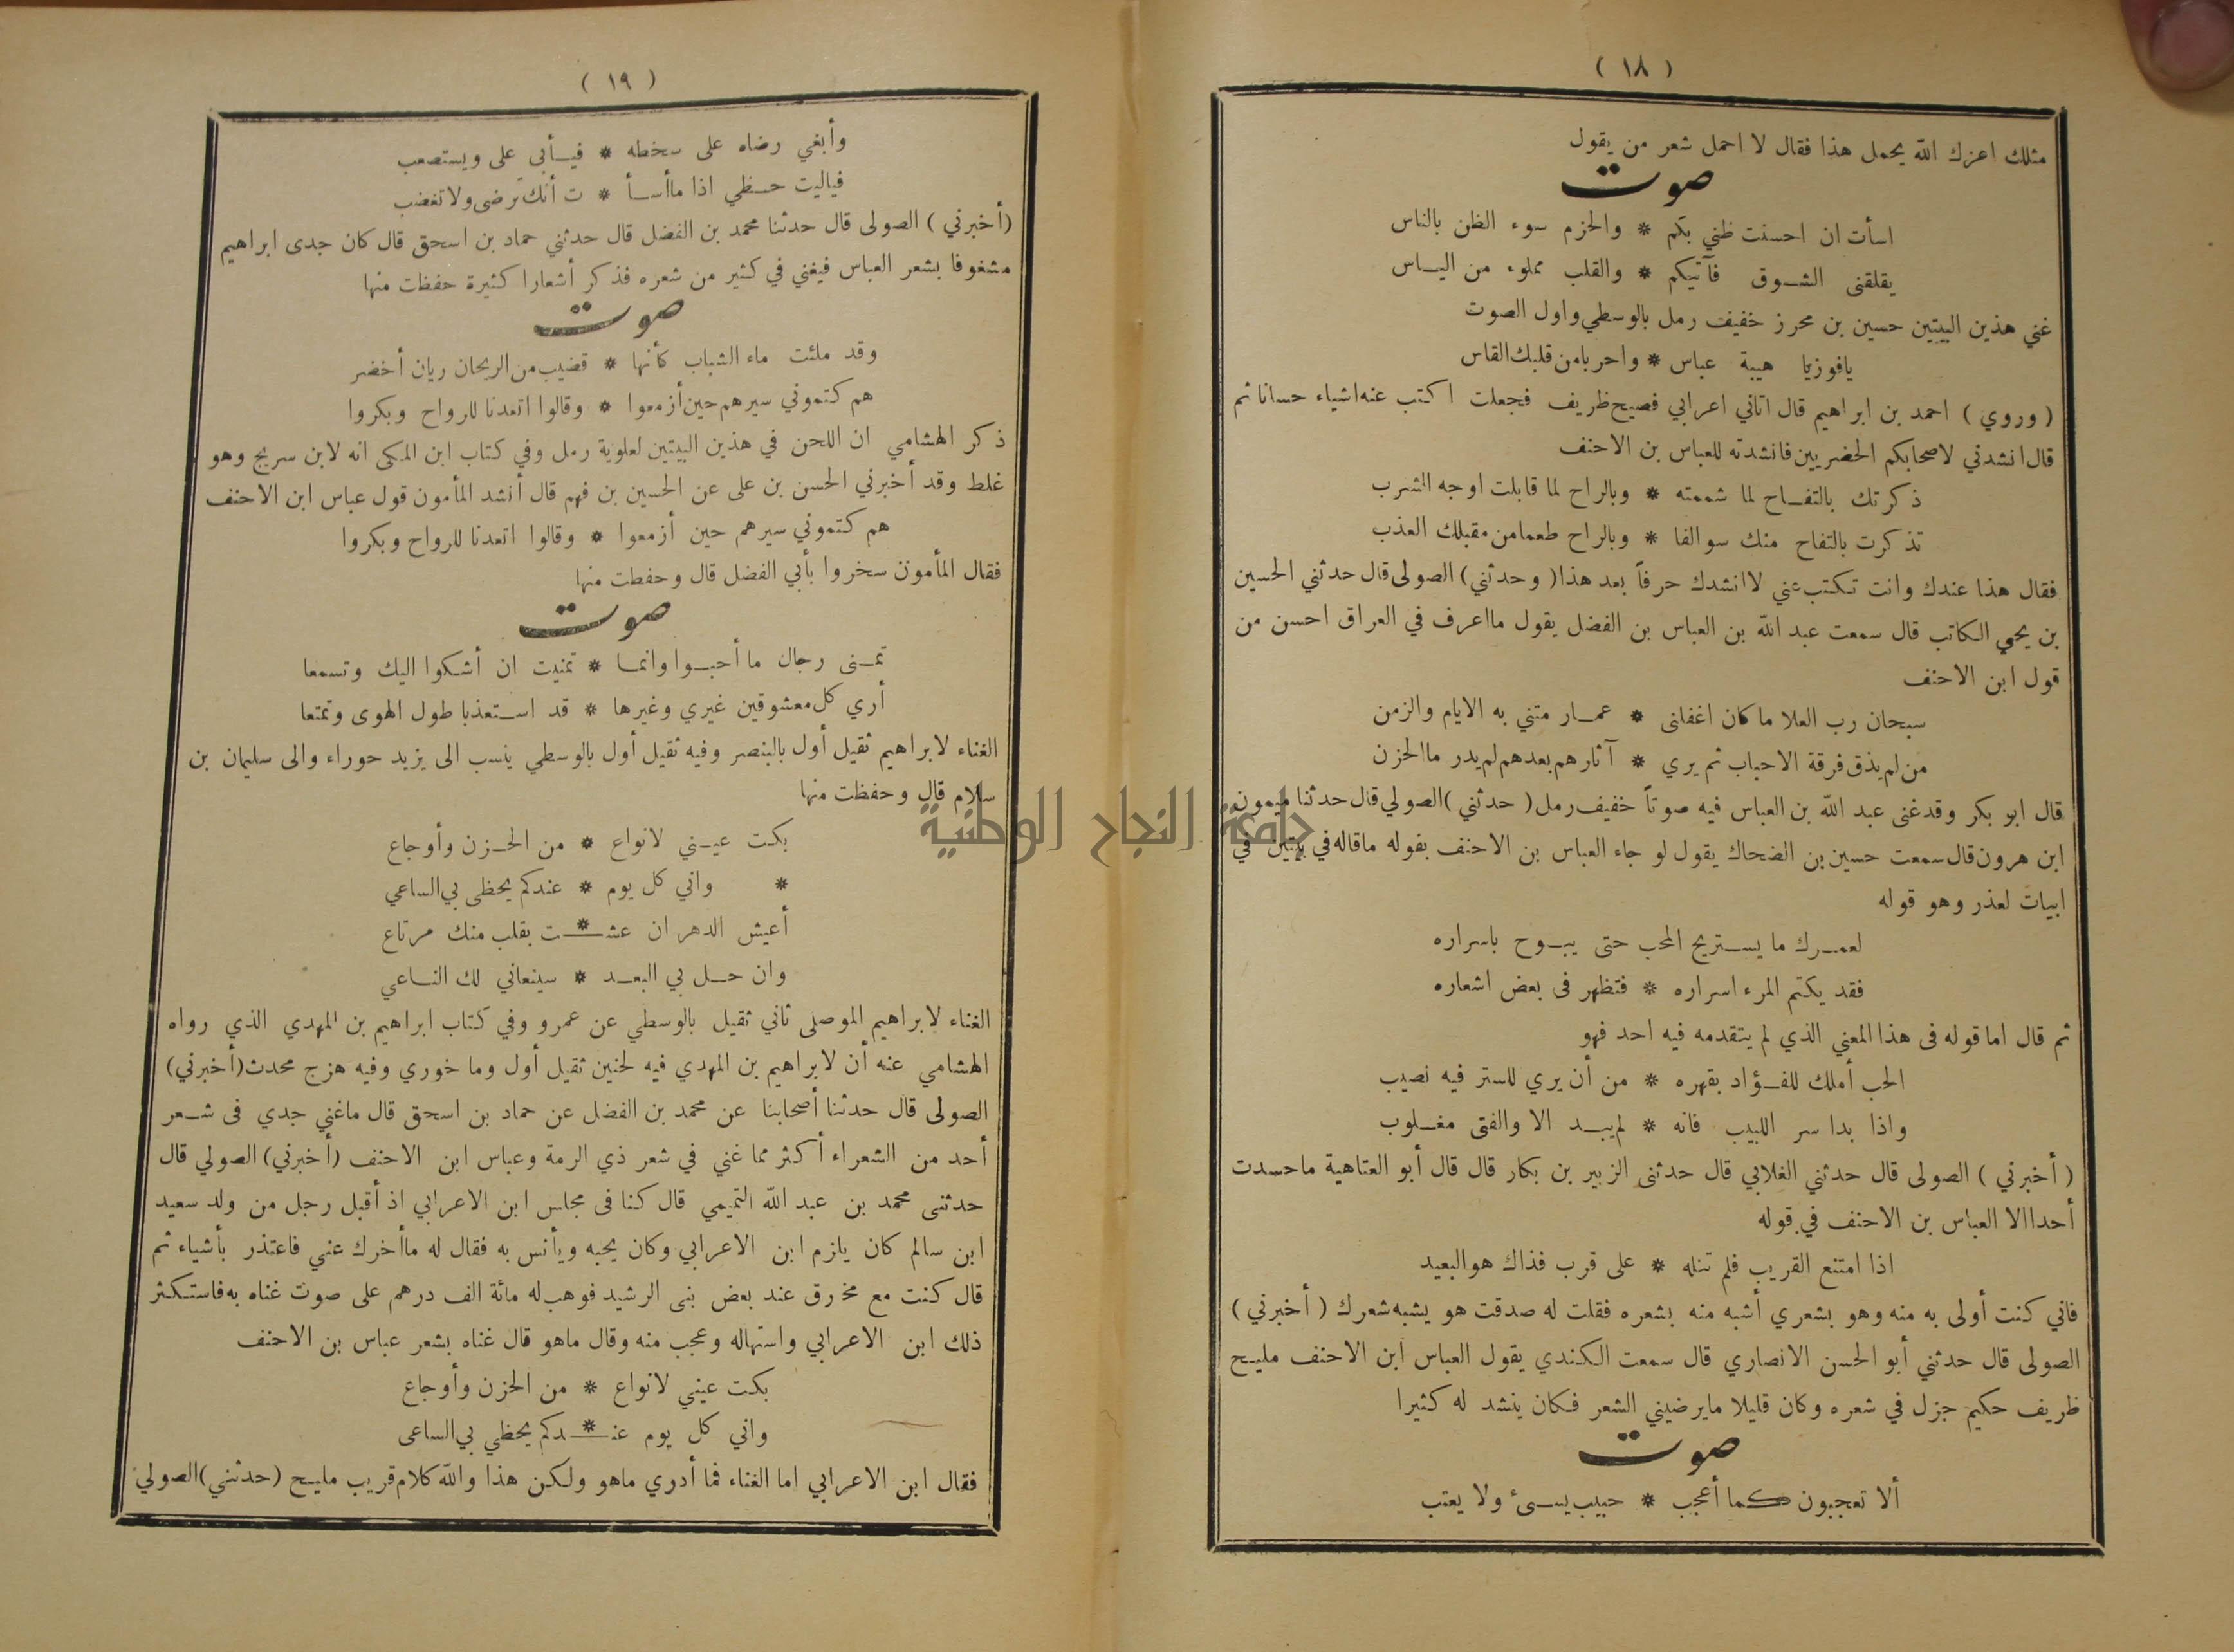 ( ١٨ )
مثلك اعزك الله يحمل هذا فقال لا احمل شعر من يقول
صوت
اسأت ان احسنت ظني بكم * والحزم سوء الظن بالناس
يقلقنى الشوق فآتيكم * والقلب مملوء من الياس
غني هذين البيتين حسين بن محرز خفيف رمل بالوسطي واول الصوت
يافوز يا هيبة عباس * واحربا من قلبك القاس
( وروي ) احمد بن ابراهيم قال اتاني اعرابي فصيح ظريف فجعلت اكتب عنه اشياء حسانا ثم
قال انشدني لاصحابكم الحضريين فانشدته للعباس بن الاحنف
ذكرتك بالتفاح لما شممته * وبالراح لما قابلت اوجه الشرب
تذكرت بالتفاح منك سوالفا * وبالراح طعما من مقبلك العذب
فقال هذا عندك وانت تكتب عني لا انشدك حرفاً بعد هذا ( وحدثني ) الصولى قال حدثني الحسين
بن يحيي الكاتب قال سمعت عبد الله بن العباس بن الفضل يقول ما اعرف في العراق احسن من
قول ابن الاحنف
سبحان رب العلا ما كان اغفانى * عمار متني به الايام والزمن
من لم يذق فرقة الاحباب ثم يري * آثارهم بعدهم لم يدر ما الحزن
قال ابو بكر وقد غنى عبد الله بن العباس فيه صوتاً خفيف رمل ( حدثني ) الصولي قال حدثنا ميمون
ابن هرون قال سمعت حسين بن الضحاك يقول لو جاء العباس بن الاحنف بقوله ماقاله في بيتين في
ابيات لعذر وهو قوله
لعمرك ما يستريح المحب حتى يبوح باسراره
فقد يكتم المرء اسراره * فتظهر فى بعض اشعاره
ثم قال اما قوله فى هذا المعني الذي لم يتقدمه فيه احد فهو
الحب أملك للفؤاد بقهره * من أن يري للستر فيه نصيب
واذا بدا سر اللبيب فانه * لم يبد الا والفتى مغلوب
( أخبرني ) الصولى قال حدثني الغلابي قال حدثنى الزبير بن بكار قال قال أبو العتاهية ماحسدت
أحدا الا العباس بن الاحنف في قوله
اذا امتنع القريب فلم تنله * على قرب فذاك هو البعيد
فاني كنت أولى به منه وهو بشعري أشبه منه بشعره فقلت له صدقت هو يشبه شعرك ( أخبرني )
الصولى قال حدثني أبو الحسن الانصاري قال سمعت الكندي يقول العباس ابن الاحنف مليح
ظريف حكيم جزل في شعره وكان قليلا ما يرضيني الشعر فكان ينشد له كثيرا
صوت
ألا تعجبون كما أعجب * حبيب يسىء ولا يعتب
( ١٩ )
وأبغي رضاه على سخطه * فيأبى على ويستصعب
فياليت حظي اذا ما أسأ * ت أنك ترضى ولا تغضب
( أخبرني ) الصولى قال حدثنا محمد بن الفضل قال حدثني حماد بن اسحق قال كان جدى ابراهيم
مشغوفا بشعر العباس فيغني في كثير من شعره فذكر أشعارا كثيرة حفظت منها
صوت
وقد ملئت ماء الشباب كأنها * قضيب من الريحان ريان أخضر
هم كتموني سيرهم حين أزمعوا * وقالوا اتعدنا للرواح وبكروا
ذكر الهشامي ان اللحن في هذين البيتين لعلوية رمل وفي كتاب ابن المكى انه لابن سريج وهو
غلط وقد أخبرني الحسن بن على عن الحسين بن فهم قال أنشد المأمون قول عباس ابن الاحنف
هم كتموني سيرهم حين أزمعوا * وقالوا اتعدنا للرواح وبكروا
فقال المأمون سخروا بأبي الفضل قال وحفظت منها
صوت
تمنى رجال ما أحبوا وانما * تمنيت ان أشكوا اليك وتسمعا
أري كل معشوقين غيري وغيرها * قد استعذبا طول الهوى وتمتعا
الغناء لابراهيم ثقيل أول بالبنصر وفيه ثقيل أول بالوسطي ينسب الى يزيد حوراء والى سليمان بن
سلام قال وحفظت منها
بكت عيني لانواع * من الحزن وأوجاع
* واني كل يوم * عندكم يحظى بي الساعي
أعيش الدهر ان عشـ * ـت بقلب منك مرتاع
وان حل بي البعد * سينعاني لك الناعي
الغناء لابراهيم الموصلى ثاني ثقيل بالوسطي عن عمرو وفي كتاب ابراهيم بن المهدي الذي رواه
الهشامي عنه أن لابراهيم بن المهدي فيه لحنين ثقيل أول وما خوري وفيه هزج محدث ( أخبرني )
الصولى قال حدثنا أصحابنا عن محمد بن الفضل عن حماد بن اسحق قال ماغني جدي فى شعر
أحد من الشعراء أكثر مما غني في شعر ذي الرمة وعباس ابن الاحنف ( أخبرني ) الصولي قال
حدثنى محمد بن عبد الله التميمي قال كنا فى مجلس ابن الاعرابي اذ أقبل رجل من ولد سعيد
ابن سالم كان يازم ابن الاعرابي وكان يحبه ويأنس به فقال له ما أخرك عني فاعتذر بأشياء ثم
قال كنت مع مخارق عند بعض بنى الرشيد فوهب له مائة الف درهم على صوت غناه به فاستكثر
ذلك ابن الاعرابي واستهاله وعجب منه وقال ماهو قال غناه بشعر عباس بن الاحنف
بكت عيني لانواع * من الحزن وأوجاع
واني كل يوم عنـ * ـدكم يحظي بي الساعى
فقال ابن الاعرابي اما الغناء فما أدوي ماهو ولكن هذا والله كلام قريب مليح ( حدثني ) الصولي
جامعة النجاح الوطنية